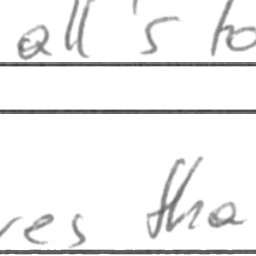 all's to
res tha